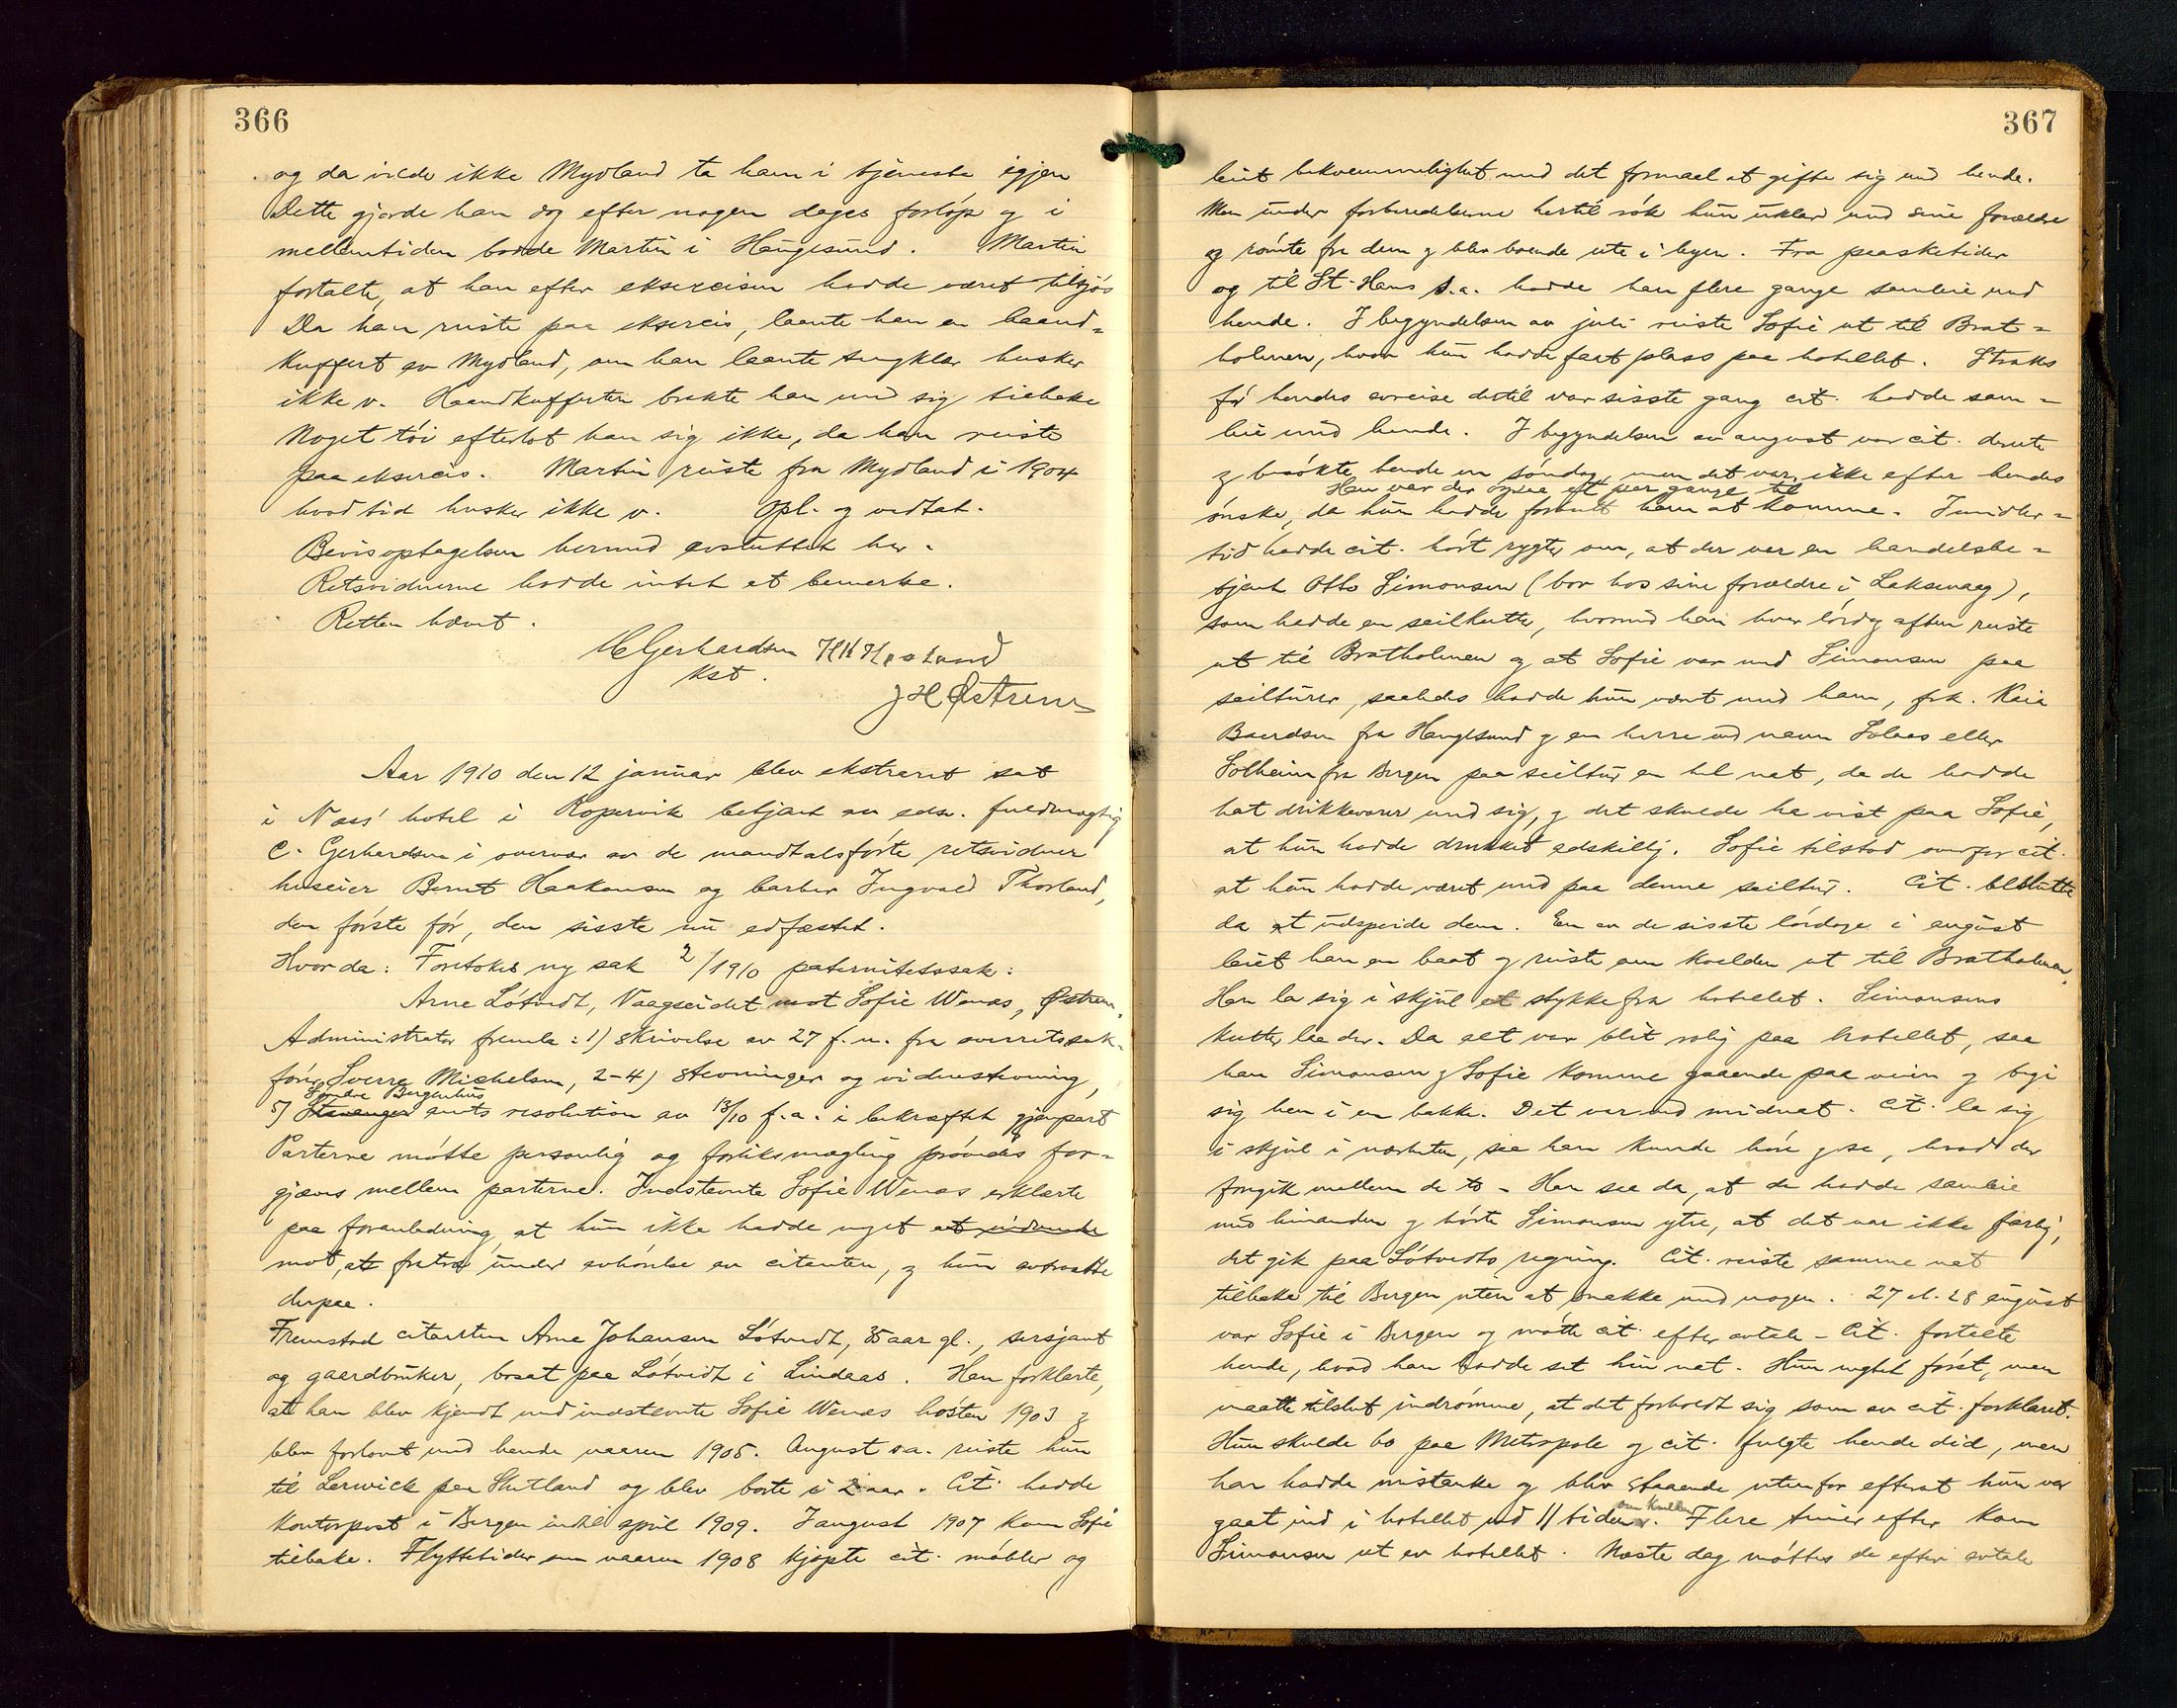 366
og da vilde ikke Mydland ta ham i tjeneste igjen
Dette gjorde han dog efter nogen dages forløp og i
mellemtiden bodde Martin i Haugesund. Martin
fortalte, at han efter eksercisen hadde været tilsjøs
Da han reiste paa eksercis, laante han en haand=
kuffert av Mydland, om han laante sengklær husker
ikke v. Haandkufferten brakte han med sig tilbake
Noget tøi efterlot han sig ikke, da han reiste
paa eksercis. Martin reiste fra Mydland i 1904
hvad tid husker ikke v. Opl. og vedtat.
Bevisoptagelsen hermed avsluttet her.
Retsvidnerne hadde intet at bemerke.
Retten hævet.
C Gerhardsen
kst.
J H Østrem
Aar 1910 den 12 januar blev ekstraret sat
i Næs' hotel i Kopervik betjent av edsv. fuldmægtig
C. Gerhardsen i overvær av de mandtalsførte retsvidner
huseier Bernt Haakonsen og barber Ingvald Thorland,
den første før, den sisste nu edfæstet.
Hvorda: Foretokes ny sak 2/1910 paternitetssak:
Arne Løtvedt, Vaagseidet mot Sofie Wenæs, Østrem.
Administrator fremla: 1) skrivelse av 27 f. m. fra overretssak-
fører Sverre Michelsen, 2-4) stevninger og vidnestevning,
Søndre Bergenhus
5) Stavanger amts resolution av 13/10 f.a. i bekræftet gjenpart
Parterne møtte personlig og forliksmægling prøvedes for=
gjæves mellem parterne. Indstevnte Sofie Wenæs erklærte
paa foranledning, at hun ikke hadde noget at indvende
mot, at fratræ under avhørelse av citanten, og hun avtraatte
derpaa.
Fremstod citanten Arne Johansen Løtvedt, 35 aar gl., sersjant
og gaardbruker, bosat paa Løtvedt i Lindaas. Han forklarte,
at han blev kjendt med indstevnte Sofie Wenæs høsten 1903 og
blev forlovet med hende vaaren 1905. August s.a. reiste hun
til Lerwick paa Shetland og blev borte i 2 aar. Cit. hadde
kontorpost i Bergen indtil april 1909. I august 1907 kom Sofie
tilbake. Flyttetiden om vaaren 1908 kjøpte cit. møbler og
367
leiet bekvemmelighet med det formaal at gifte sig med hende.
Men under forberedelserne hertil røk hun uklar med sine forældre
og rømte fra dem og blev boende ute i byen. Fra paasketider
og til St-Hans s.a. hadde han flere gange samleie med
hende. I begyndelsen av juli reiste Sofie ut til Brat=
holmen, hvor hun hadde faat plass paa hotellet. Straks
før hendes avreise dertil var sisste gang cit. hadde sam=
leie med hende. I begyndelsen av august var cit. derute
og besøkte hende en søndag, men det var ikke efter hendes
Han var der ogsaa et par gange til
ønske, da hun hadde forbudt ham at komme. Imidler=
tid hadde cit. hørt rygter om, at der var en handelsbe=
tjent Otto Simonsen (bor hos sine forældre i Laksevaag),
som hadde en seilkutter, hvormed han hver lørdag aften reiste
ut til Bratholmen og at Sofie var med Simonsen paa
seilturer, saaledes hadde hun været med ham, frk. Kaia
Baardsen fra Haugesund og en herre ved navn Solaas eller
Solheim fra Bergen paa seiltur en hel nat, da de hadde
hat drikkevarer med sig, og det skulde ha vist paa Sofie,
at hun hadde drukket adskillig. Sofie tilstod overfor cit.
at hun hadde været med paa denne seiltur. Cit. besluttet
da at utspeide dem. En av de sisste lørdage i august
leiet han en baat og reiste om kvelden ut til Bratholmen.
Han la sig i skjul et stykke fra hotellet. Simonsens
kutter laa der. Da alt var blit rolig paa hotellet, saa
han Simonsen og Sofie komme gaaende paa veien og begi
sig hen i en bakke. Det var ved midnat. Cit. la sig
i skjul i nærheten, saa han kunde høre og se, hvad der
foregik mellem de to - Han saa da, at de hadde samleie
med hinanden og hørte Simonsen ytre, at det var ikke farlig,
det gik paa Løtvedts regning. Cit. reiste samme nat
tilbake til Bergen uten at snakke med nogen. 27 el. 28 august
var Sofie i Bergen og møtte cit. efter avtale - Cit. fortalte
hende, hvad han hadde set hin nat. Hun negtet først, men
maatte tilslut indrømme, at det forholdt sig som av cit. forklaret.
Hun skulde bo paa Metropole og cit. fulgte hende did, men
han hadde mistanke og blev staaende utenfor efterat hun var
om kvelden
gaat ind i hotellet ved 11 tiden. Flere timer efter kom
Simonsen ut av hotellet. Næste dag møttes de efter avtale